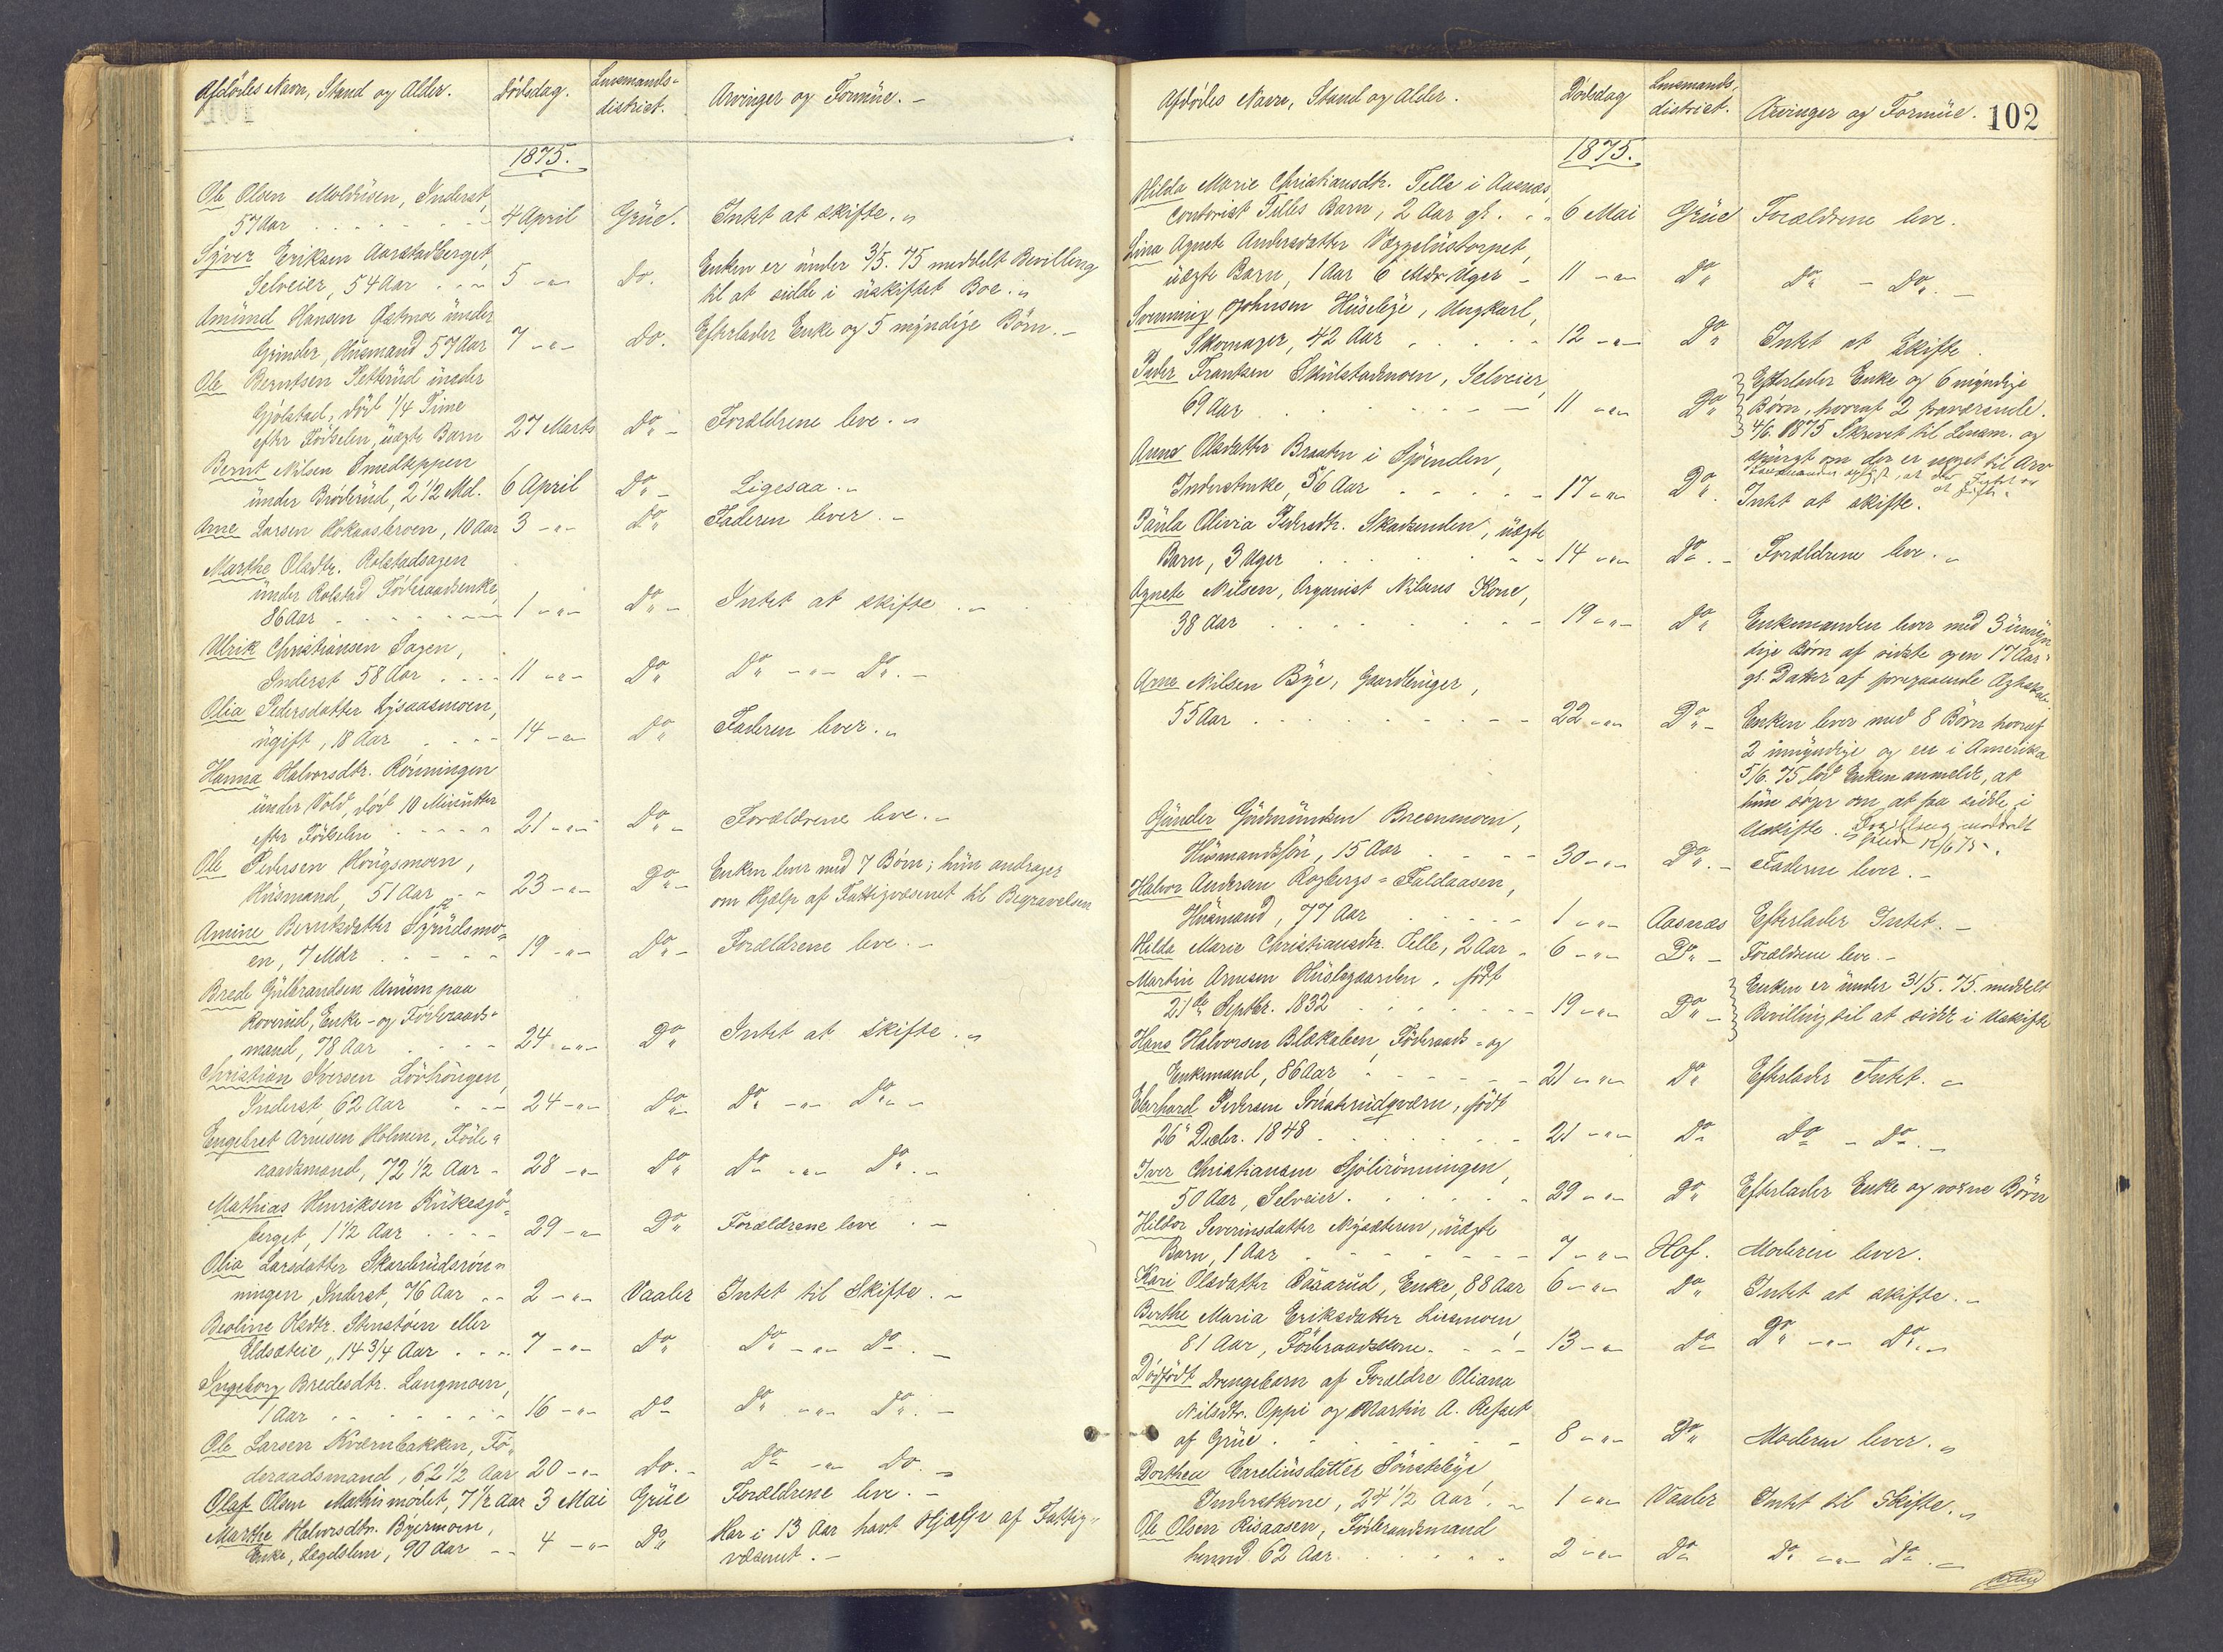 Afdödes Navn, Stand og Alder. Dödsdag. Lensmands-
district. Arvinger og Formüe. -
1875.
Ole Olsen Moldüsen, Inderst,
57 Aar 4 April Grüe. Intet at skifte. "
Syver Eriksen Aarstadberget,
Selveier, 54 Aar 5 - " - Do. Enken er ünder 3/5. 75 meddelt Bevilling
til at sidde i üskiftet Boe. "
Amünd Hansen Östmoe ünder
Grinder, Hüsmand 57 Aar 7 - " - Do. Efterlader Enke og 5 myndige Börn. -
Ole Berntsen Setterüd ünder
Gjölstad, död 1/4 Time
efter Födselen, üægte Barn 27 Marts Do - Forældrene leve. "
Bernt Nilsen Smedteppen
ünder Bröderüd, 2 1/2 Md. 6 April Do - Ligesaa. "
Arne Larsen Hokaasbroen, 10 Aar 3 - " - Do Faderen lever. -
Marthe Olsdtr. Rolstadsagen
ünder Rolstad Föderaadsenke,
86 Aar 1 - " - Do - Intet at skifte. -
Ulrik Christiansen Sagen,
Inderst 58 Aar 11 - " - Do Do - " - Do. -
Olia Pedersdatter Lysaasmoen,
ügift, 18 Aar 14 - " - Do Faderen lever. "
Hanna Halvorsdtr. Rönningen
ünder Vold, död 10 Minütter
efter Födselen 21 - " - Do - Forældrene leve. -
Ole Pedersen Hougsmoen,
Hüsmand, 51 Aar 23 - " - Do - Enken lever med 7 Börn; hün andrager
om Hjælp af Fattigvæsenet til Begravelsen
Amine Berntsdatter Syrüdsmo-
en, 7 Mdr 19 - " - Do - Forældrene leve. -
Brede Gülbrandsen Unüm paa
Roverüd, Enke- og Föderaads-
mand, 78 Aar 24 - " - Do Intet at skifte. "
Christian Iversen Lövhöugen,
Inderst, 62 Aar 24 - " - Do Do - " - Do. -
Engebret Arnesen Holmen, Föde-
raadsmand, 72 1/2 Aar 28 - " - Do Do - " - Do. "
Mathias Henriksen Kükssjö-
berget, 1 1/2 Aar 29 - " - Do Forældrene leve. -
Olia Larsdatter Skarderüdsrön-
ningen, Inderst, 76 Aar 2 - " - Vaaler Intet til Skifte. -
Beoline Olsdtr. Stenstöen eller
Eldsæteie, 14 3/4 Aar 7 - " - Do Do - " - Do. -
Ingeborg Bredesdtr. Langmoen,
1 Aar 16 - " - Do Do - " - Do. -
Ole Larsen Kværnbakken, Fö-
deraadsmand, 62 1/2 Aar 20 - " - Do. - Do - " - Do. -
Olaf Olsen 7 1/2 Aar 3 Mai Grüe Forældrene leve. -
Marthe Halvorsdtr. Byermoen,
Enke, Lægdslem, 90 Aar 4 - " - Do Har i 13 Aar havt Hjælp af Fattig-
væsenet. -
102
Afdödes Navn, Stand og Alder. Dödsdag Lensmands-
district. Arvinger og Formüe.
1875.
Hilda Marie Christiansdtr. Telle i Aasnæs,
Contorist Telles Barn, 2 Aar gl. 6 Mai Grüe Forældrene leve.
Lina Agnete Andersdatter Væggelüstorpet,
üægte Barn, 1 Aar 6 Mdr Uger 11 - " - Do Do - Do. -
Svenning Johnsen Hüsebye, Ungkarl,
Skomager, 42 Aar 12 - " - Do Intet at Skifte.
Peder Frantsen Skülstadmoen, Selveier,
69 Aar 11 - " - Do Efterlader Enke og 6 myndige
Börn, hvoraf 2 fraværende.
4/6. 1875 Skrevet til Lensm. og
spürgt om der er noget til Arv
Lensmanden oplyst, at der Intet er
at skifte.
Anne Olsdatter Braaten i Sjöenden,
Inderstenke, 56 Aar 17 - " - Do. Intet at skifte.
Paüla Olivia Pedersdtr. Skadsenden, üægte
Barn, 3 Uger 14 - " - Do. - Forældrene leve. "
Agnete Nilsen, Organist Nilsens Kone,
38 Aar 19 - " - Do Enkemanden lever med 3 ümyn
dige Börn af sidste og en 17 Aar
gl. Datter af foregaaende Ægteskab.
Arne Nilsen Bye, Gaardbrüger,
55 Aar 22 - " - Do - Enken lever med 8 Börn hvoraf
2 ümyndige og en i Amerika
5/6. 75 lod Enken anmelde, at
hün söger om at faa sidde i
Uskifte. Bevilling meddelt
12/6 75.
Günder Güdmündsen Bresmoen,
Hüsmandssön, 15 Aar 30 - " - Do. - Faderen lever. -
Halvor Andersen Rogbergs-Faldaasen,
Hüsmand, 77 Aar 1 - " - Aasnæs Efterlader Intet. -
Hilda Marie Christiansdtr. Telle, 2 Aar 6 - " - Do - Forældrene leve. -
Martin Arnesen Hüsbygaarden, födt
21de Septbr. 1832 19 - " - Do - Enken er ünder 31/5. 75. meddelt
Bevilling til at sidde i Uskifte
Hans Halvorsen Blækaleen, Föderaads- og
Enkemand, 86 Aar 21 - " - Do Efterlader Intet. -
Eberhard Pedersen Sönsterüdqværn, födt
26" Decbr. 1848 21 - " - Do Do - Do. -
Iver Christiansen Sjölirönningen,
50 Aar, Selveier. 29 - " - Do Efterlader Enke og voxne Börn
Hilder Severinsdatter Nysæteren, üægte
Barn, 1 Aar 7 - " - Hof. Moderen lever.
Kari Olsdatter Baasarüd, Enke, 88 Aar 6 - " - Do Intet at skifte. -
Berthe Maria Eriksdatter Liesmoen,
81 Aar, Föderaadskone. 13 - " - Do Do - " - Do. "
Dödfödt Drengebarn af Forældre Oliana
Nilsdtr. Oppi og Martin A. Refset
af Grüe. 8 - " - Do Moderen lever. "
Dorthea Careliüsdatter Sönstebye,
Inderstkone, 24 1/2 Aar. 1 - " - Vaaler Intet til Skifte. "
Ole Olsen Risaasen, Föderaadsmand
62 Aar. 2 - " - Do Do - " - Do. -